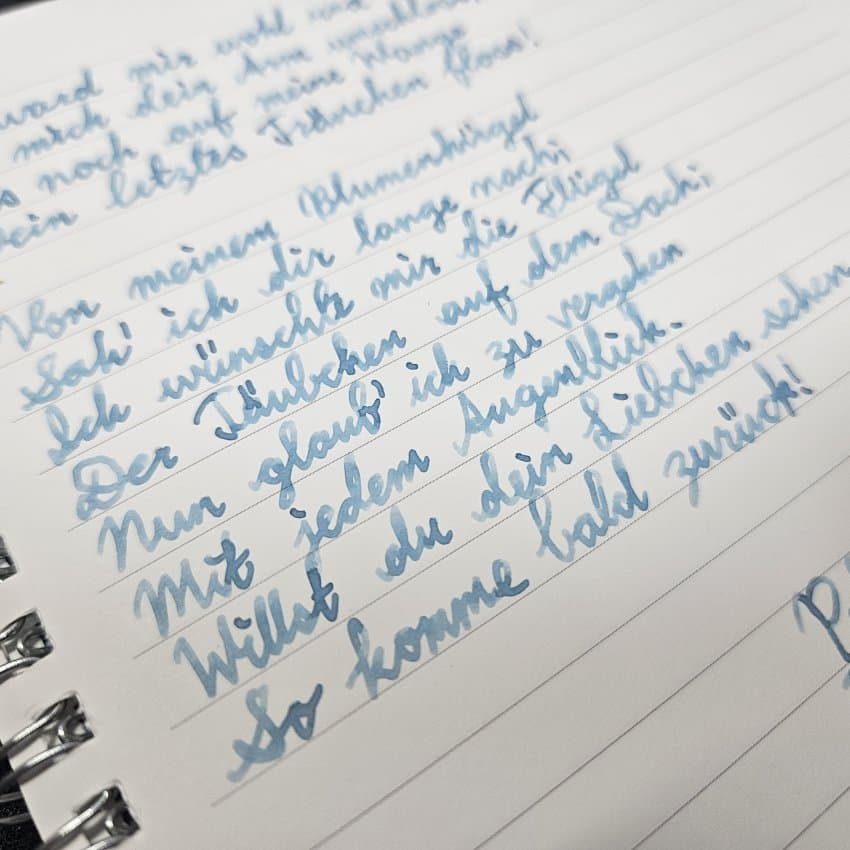 ward mir wohl und
mich dein Arm umschloss,
noch auf meine Wange
ein letztes Tränchen floss!
Von meinem Blumenhügel
Sah' ich dir lange nach;
Ich wünschte mir die Flügel
Der Täubchen auf dem Dach;
Nun glaub' ich zu vergehen
Mit jedem Augenblick.
Willst du dein Liebchen sehen
So komme bald zurück!